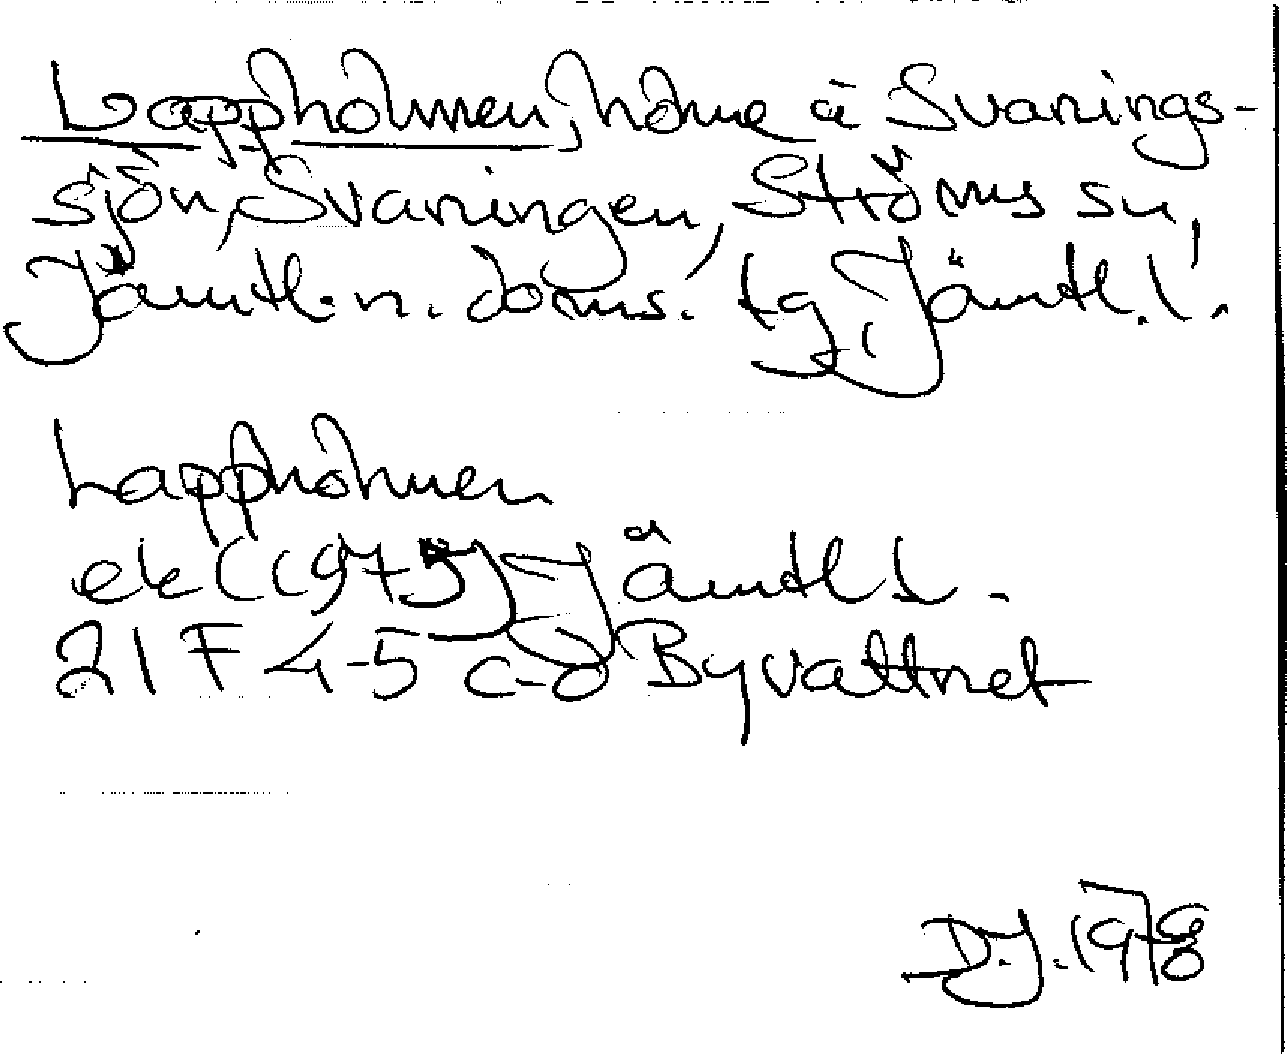 Lappholmen, holme i Svanings-
sjön, Svaningen, Ströms sn,
Jämtl. n. doms. tg, Jämtl. l.
Lappholmen
ek (1975) Jämtl l.
21 F 4-5 c-d Byvattnet
D.J. 1978